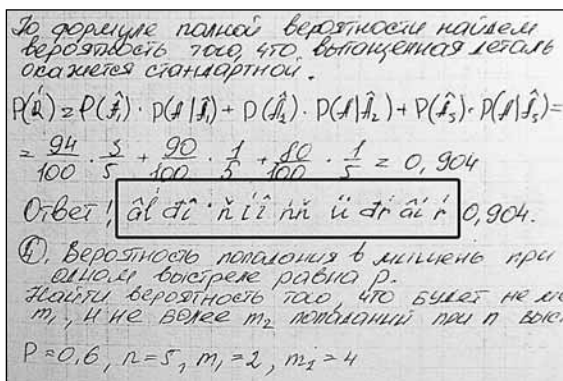 По формуле полной вероятности найдем
вероятность того, что вытащенная деталь
окажется стандартной.
P(A) = P(Â₁) · P(A|Â₁) + P(Â₂) · P(A|Â₂) + P(Â₃) · P(A|Â₃) =
= 94/100 · 3/5 + 90/100 · 1/5 + 80/100 · 1/5 = 0,904
Ответ: âĺ đî ˙ň í î ńň ü đŕ âí ŕ 0,904.
④. Вероятность попадания в мишень при
одном выстреле равна p.
Найти вероятность того, что будет не
m₁, и не более m₂ попаданий при n
P=0,6, n=5, m₁=2, m₂=4